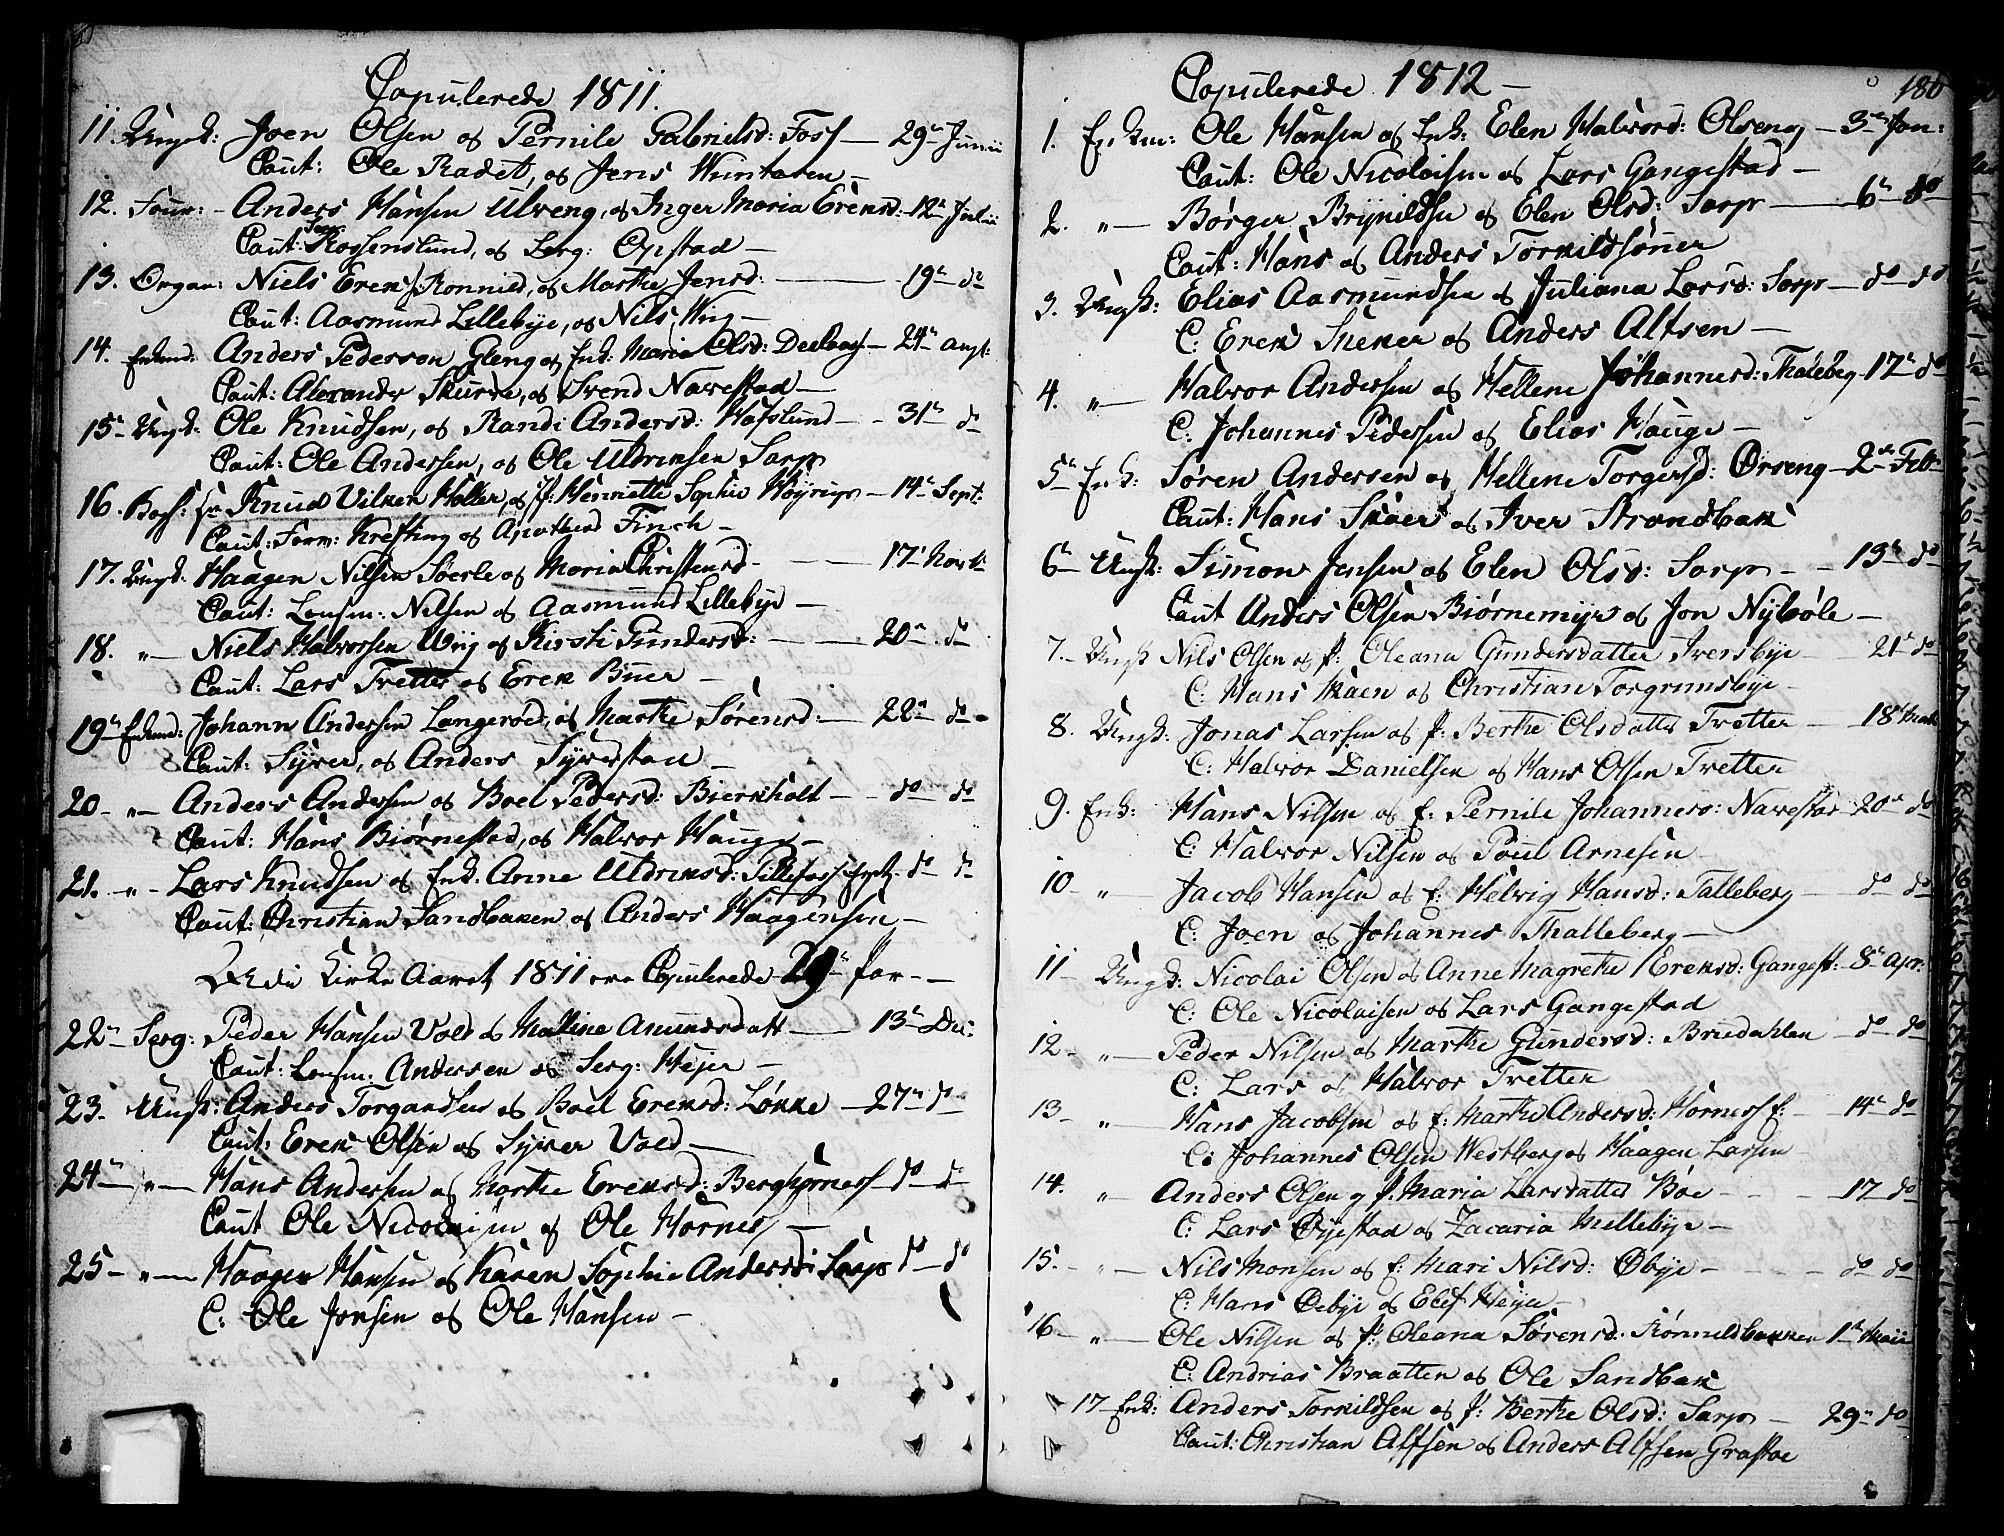 Copulerede 1811.
11. Ungk: Joen Olsen og Pernile Gabrielsd: Foss — 29de Junii
Caut: Ole Radet, og Jens Huntaten —
12. Four: Anders Hansen Ulveng, og Inger Maria Erensd: 12te Julii
Caut: Serg: Rossenslund, og Serg: Opstad —
13. Organ: Niels Erens: Ronnild, og Marthe Jensd: — 19de do
Caut: Aasmund Lillebye, og Nils Wug —
14. Enkmd: Anders Pederson Gleng og Enk: Maria Olsd: Deelvag — 24de augt:
Caut: Alexander Skurve, og Svend Navestad —
15. Ungk: Ole Knudsen, og Randi Andersd: Hafslund — 31te do
Caut: Ole Andersen, og Ole Uldriksen Sarp
16. Bogh: Sr. Knud Vilken Holler, og Jf: Henriette Sophie Høyrup — 14de Sept:
Caut: Form: Krefting og Apothend Finch —
17. Ungk: Haagen Nilsen Søerle og Maria Christensd — 17de Novb:
Caut: Lensm: Nilsen og Aasmund Lillebye —
18. „ — Niels Halvorsen Wiig og Kirsti Gundersd: — 20de do
Caut: Lars Tretter og Eren Buer —
19. Enkmd: Johann Andersen Langerød, og Marthe Sørensd: — 22de do
Caut: Syver, og Anders Syverstad —
20 — „ — Anders Andersen og Boel Pedersd: Bierkholt — do do
Caut: Hans Biørnestad, og Halvor Hauge —
21. „ — Lars Knudsen og Enk. Anne Uldriksd: Tillefoss — do do
Caut: Christian Sandbaken og Anders Haagensen —
Kirke Aaret 1811 ere Copulerede 29 Par —
22 Serg: Peder Hansen Vold og Malline Amundsdatt — 13de Dec:
Caut: Lensm: Andersen og Serg: Hejer —
23. Ungk: Anders Torgardsen og Boel Erensd: Løkke — 27de do
Caut: Eren Olsen og Syver Vold —
24 „ — Hans Andersen og Marthe Erensd: Berghørness do do
Caut Ole Nicolaisen og Ole Hornes —
25 — „ — Haagen Hansen og Karen Sophie Andersd: Sarp do — do
C: Ole Jonsen og Ole Hansen —
Copulerede 1812 —
186
1. Enkm: Ole Hansen og Enk: Elen Halvord: Olseng — 3de Jan:
Caut: Ole Nicolaisen og Lars Gangestad —
2. „ — Børger Brynildsen og Elen Olsd: Sarp — 6te do
Caut: Hans og Anders Torkildsønner
3. Ungk: Elias Aasmundsen og Juliana Larsd: Sarp — do do
C: Eren Skeker og Anders Altsen —
4. „ — Halvor Andersen og Hellene Johannesd: Thaleberg 17de do
C. Johannes Pedersen og Elias Hauge —
5 Enk: Søren Andersen og Hellene Torgersd: Ørseng — 2de Feb
Caut: Hans Skaer og Iver Strandbak
6 Ungk: Simon Jensen og Elen Olsd: Sarp — 13de do
Caut Anders Olsen Biørnemyr og Jon Nybøle —
7. Ungk Nils Olsen og P: Oleana Gundersdatter Iversbye — 21de do
C: Hans Skaen og Christian Torgrimsbye —
8. Ungk: Jonas Larsen og P: Berthe Olsdatter Tretter — 18de Mart
C: Halvor Danielsen og Hans Olsen Tretter
9. Enk: Hans Nilsen og E: Pernile Johannesd: Navestad — 20de do
C: Halvor Nilsen og Poul Arnesen —
10 — „ — Jacob Hansen og E: Helvig Hansd: Talleberg — do do
C: Joen og Johannes Thalleberg —
11 Ungk: Nicolai Olsen og Anne Magrethe Erensd: Gangest: 8de Apr:
C: Ole Nicolaisen og Lars Gangestad
12 — „ — Peder Nilsen og Marthe Gundersd: Bruedahlen — do do
C: Lars og Halvor Tretter
13 — „ Hans Jacobsen og E: Marthe Andersd: Horness E: — 14de do
C: Johannes Olsen Westberg og Haagen Larsen
14. „ Anders Olsen og P: Maria Larsdatter Boe — 17 do
C: Lars Øyestad og Zacaria Mellebye —
15. — „ — Nils Monsen og E: Mari Nilsd: Øbye — do do
C: Hans Oebye og Elef Heyer —
16 — „ — Ole Nilsen og P: Oleana Sørensd: Rønnildbakken 1ste Maii
C: Andrias Braatten og Ole Sandbak
17 — Enk: Anders Torkildsen og P: Berthe Olsd: Sarp — 29de do
Caut: Christian Alfsen og Anders Alfsen Grastoe